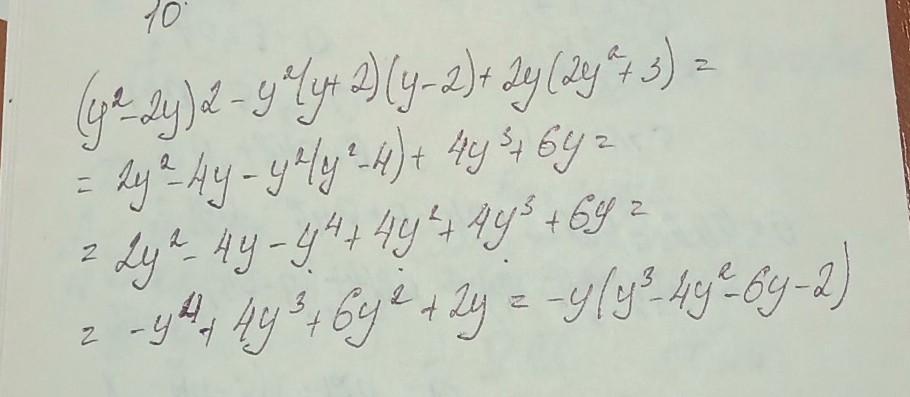 10
(y²-2y)2-y²(y+2)(y-2)+2y(2y²+3)=
=2y²-4y-y²(y²-4)+4y³+6y=
=2y²-4y-y⁴+4y²+4y³+6y=
=-y⁴+4y³+6y²+2y=-y(y³-4y²-6y-2)